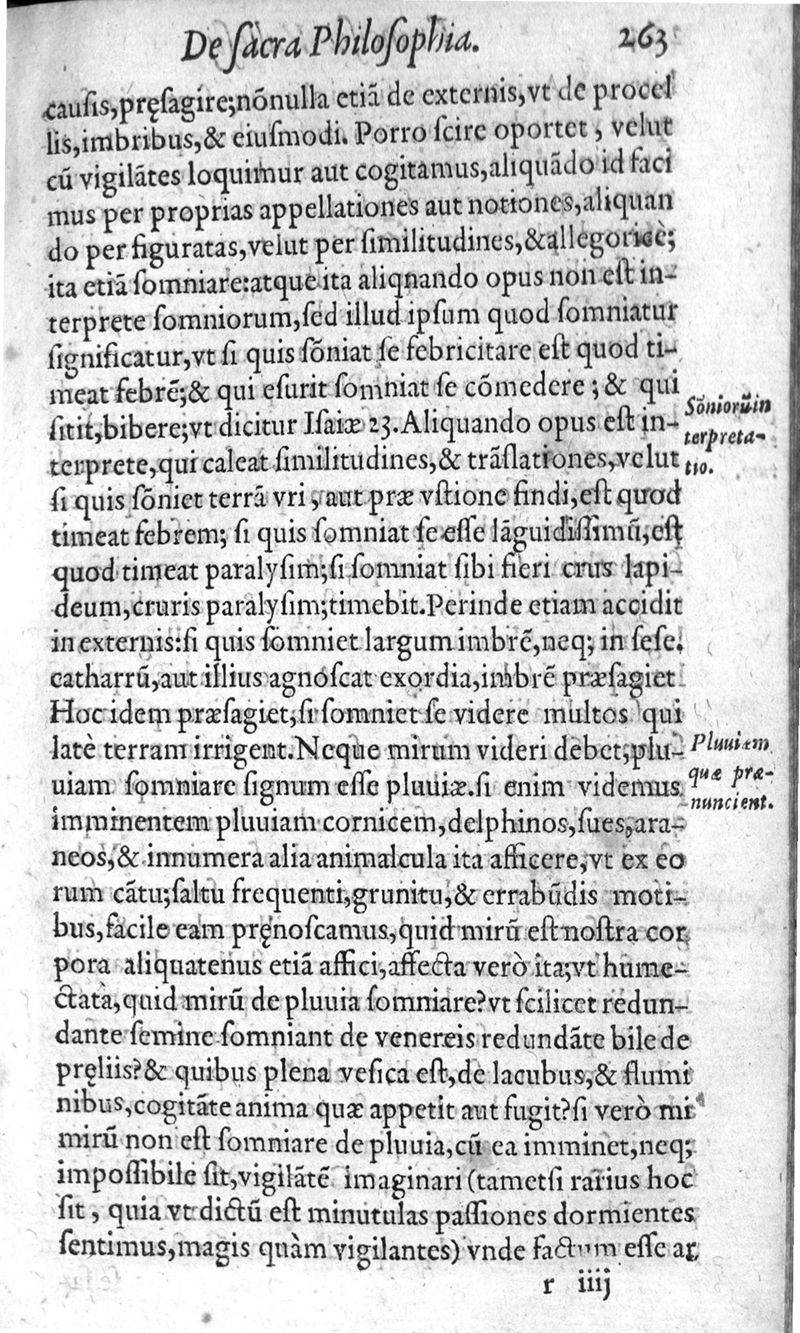 De sacra Philosophia. 263
causis,pręsagire;nõnulla etiã de externis,vt de procel
lis,imbribus,& eiusmodi. Porro scire oportet, velut
cũ vigilãtes loquimur aut cogitamus,aliquãdo id faci
mus per proprias appellationes aut notiones,aliquan
do per figuratas,velut per similitudines,& allegoricè;
ita etiã somniare:atque ita aliqnando opus non est in-
terprete somniorum,sed illud ipsum quod somniatur
significatur,vt si quis sõniat se febricitare est quod ti-
meat febrẽ;& qui esurit somniat se cõmedere; & qui
sitit,bibere;vt dicitur Isaiæ 23. Aliquando opus est in-
Sõniorũ in
terpreta-
tio.
terprete,qui caleat similitudines,& trãslationes,velut
si quis sõniet terrã vri, aut præ vstione findi,est quod
timeat febrem; si quis somniat se esse lãguidissimũ,est
quod timeat paralysim;si somniat sibi fieri crus lapi-
deum,cruris paralysim;timebit.Perinde etiam accidit
in externis:si quis somniet largum imbrẽ,neq; in sese
catharrũ,aut illius agnoscat exordia,imbrẽ præsagiet
Hoc idem præsagiet,si somniet se videre multos qui
latè terram irrigent.Neque mirum videri debet,plu-
Pluuiam
quæ præ-
nuncient.
uiam somniare signum esse pluuiæ.si enim videmus
imminentem pluuiam cornicem,delphinos,sues,ara-
neos,& innumera alia animalcula ita afficere,vt ex eo
rum cãtu;saltu frequenti,grunitu,& errabũdis moti-
bus,facile eam pręnoscamus,quid mirũ est nostra cor
pora aliquatenus etiã affici,affecta verò ita;vt hume-
ctata,quid mirũ de pluuia somniare?vt scilicet redun-
dante semine somniant de venereis redundãte bile de
pręliis?& quibus plena vesica est,de lacubus,& flumi
nibus,cogitãte anima quæ appetit aut fugit?si verò mi
mirũ non est somniare de pluuia,cũ ea imminet,neq;
impossibile sit,vigilãtẽ imaginari (tametsi rarius hoc
sit, quia vt dictũ est minutulas passiones dormientes
sentimus,magis quàm vigilantes) vnde factum esse ar
r iiij